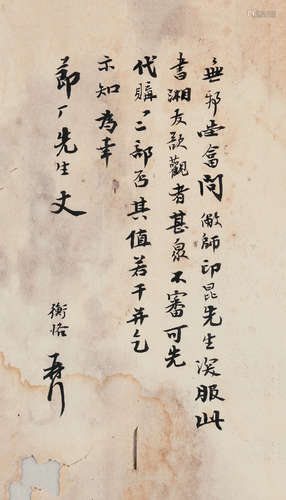 無邪堂答問敝師印昆先生深服此
書湘友欲觀者甚衆不審可先
代購一二部否其值若干并乞
示知為幸
節厂先生丈
衡恪